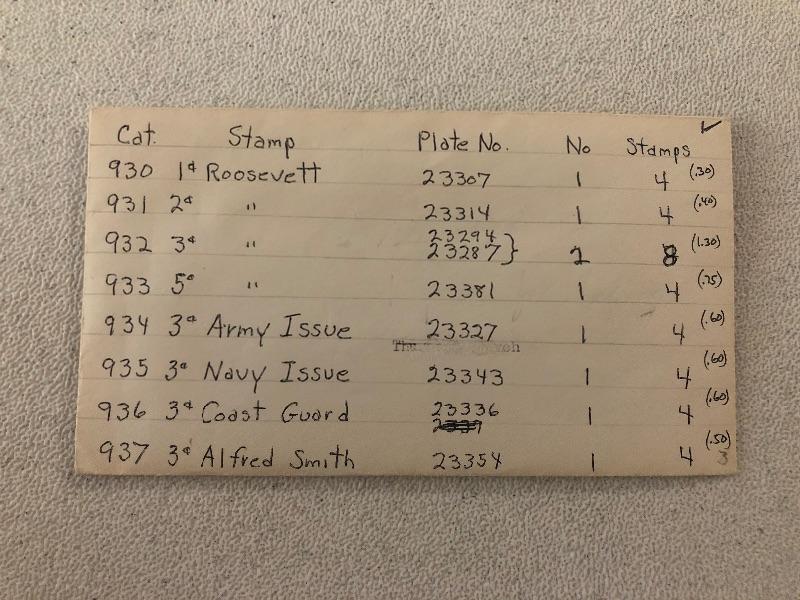 Cat. Stamp Plate No. No Stamps ✓
930 1¢ Roosevett 23307 1 4 (.30)
931 2¢ " 23314 1 4 (.40)
932 3¢ " 23294 23287 } 2 8 (1.30)
933 5¢ " 23381 1 4 (.75)
934 3¢ Army Issue 23327 1 4 (.60)
935 3¢ Navy Issue 23343 1 4 (.60)
936 3¢ Coast Guard 23336 1 4 (.60)
937 3¢ Alfred Smith 23354 1 4 (.50)
3